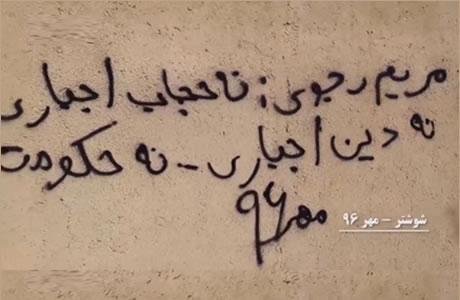 مریم رجوی: نه حجاب اجباری
نه دین اجباری - نه حکومت
مهر ۹۶
شوشتر - مهر ۹۶